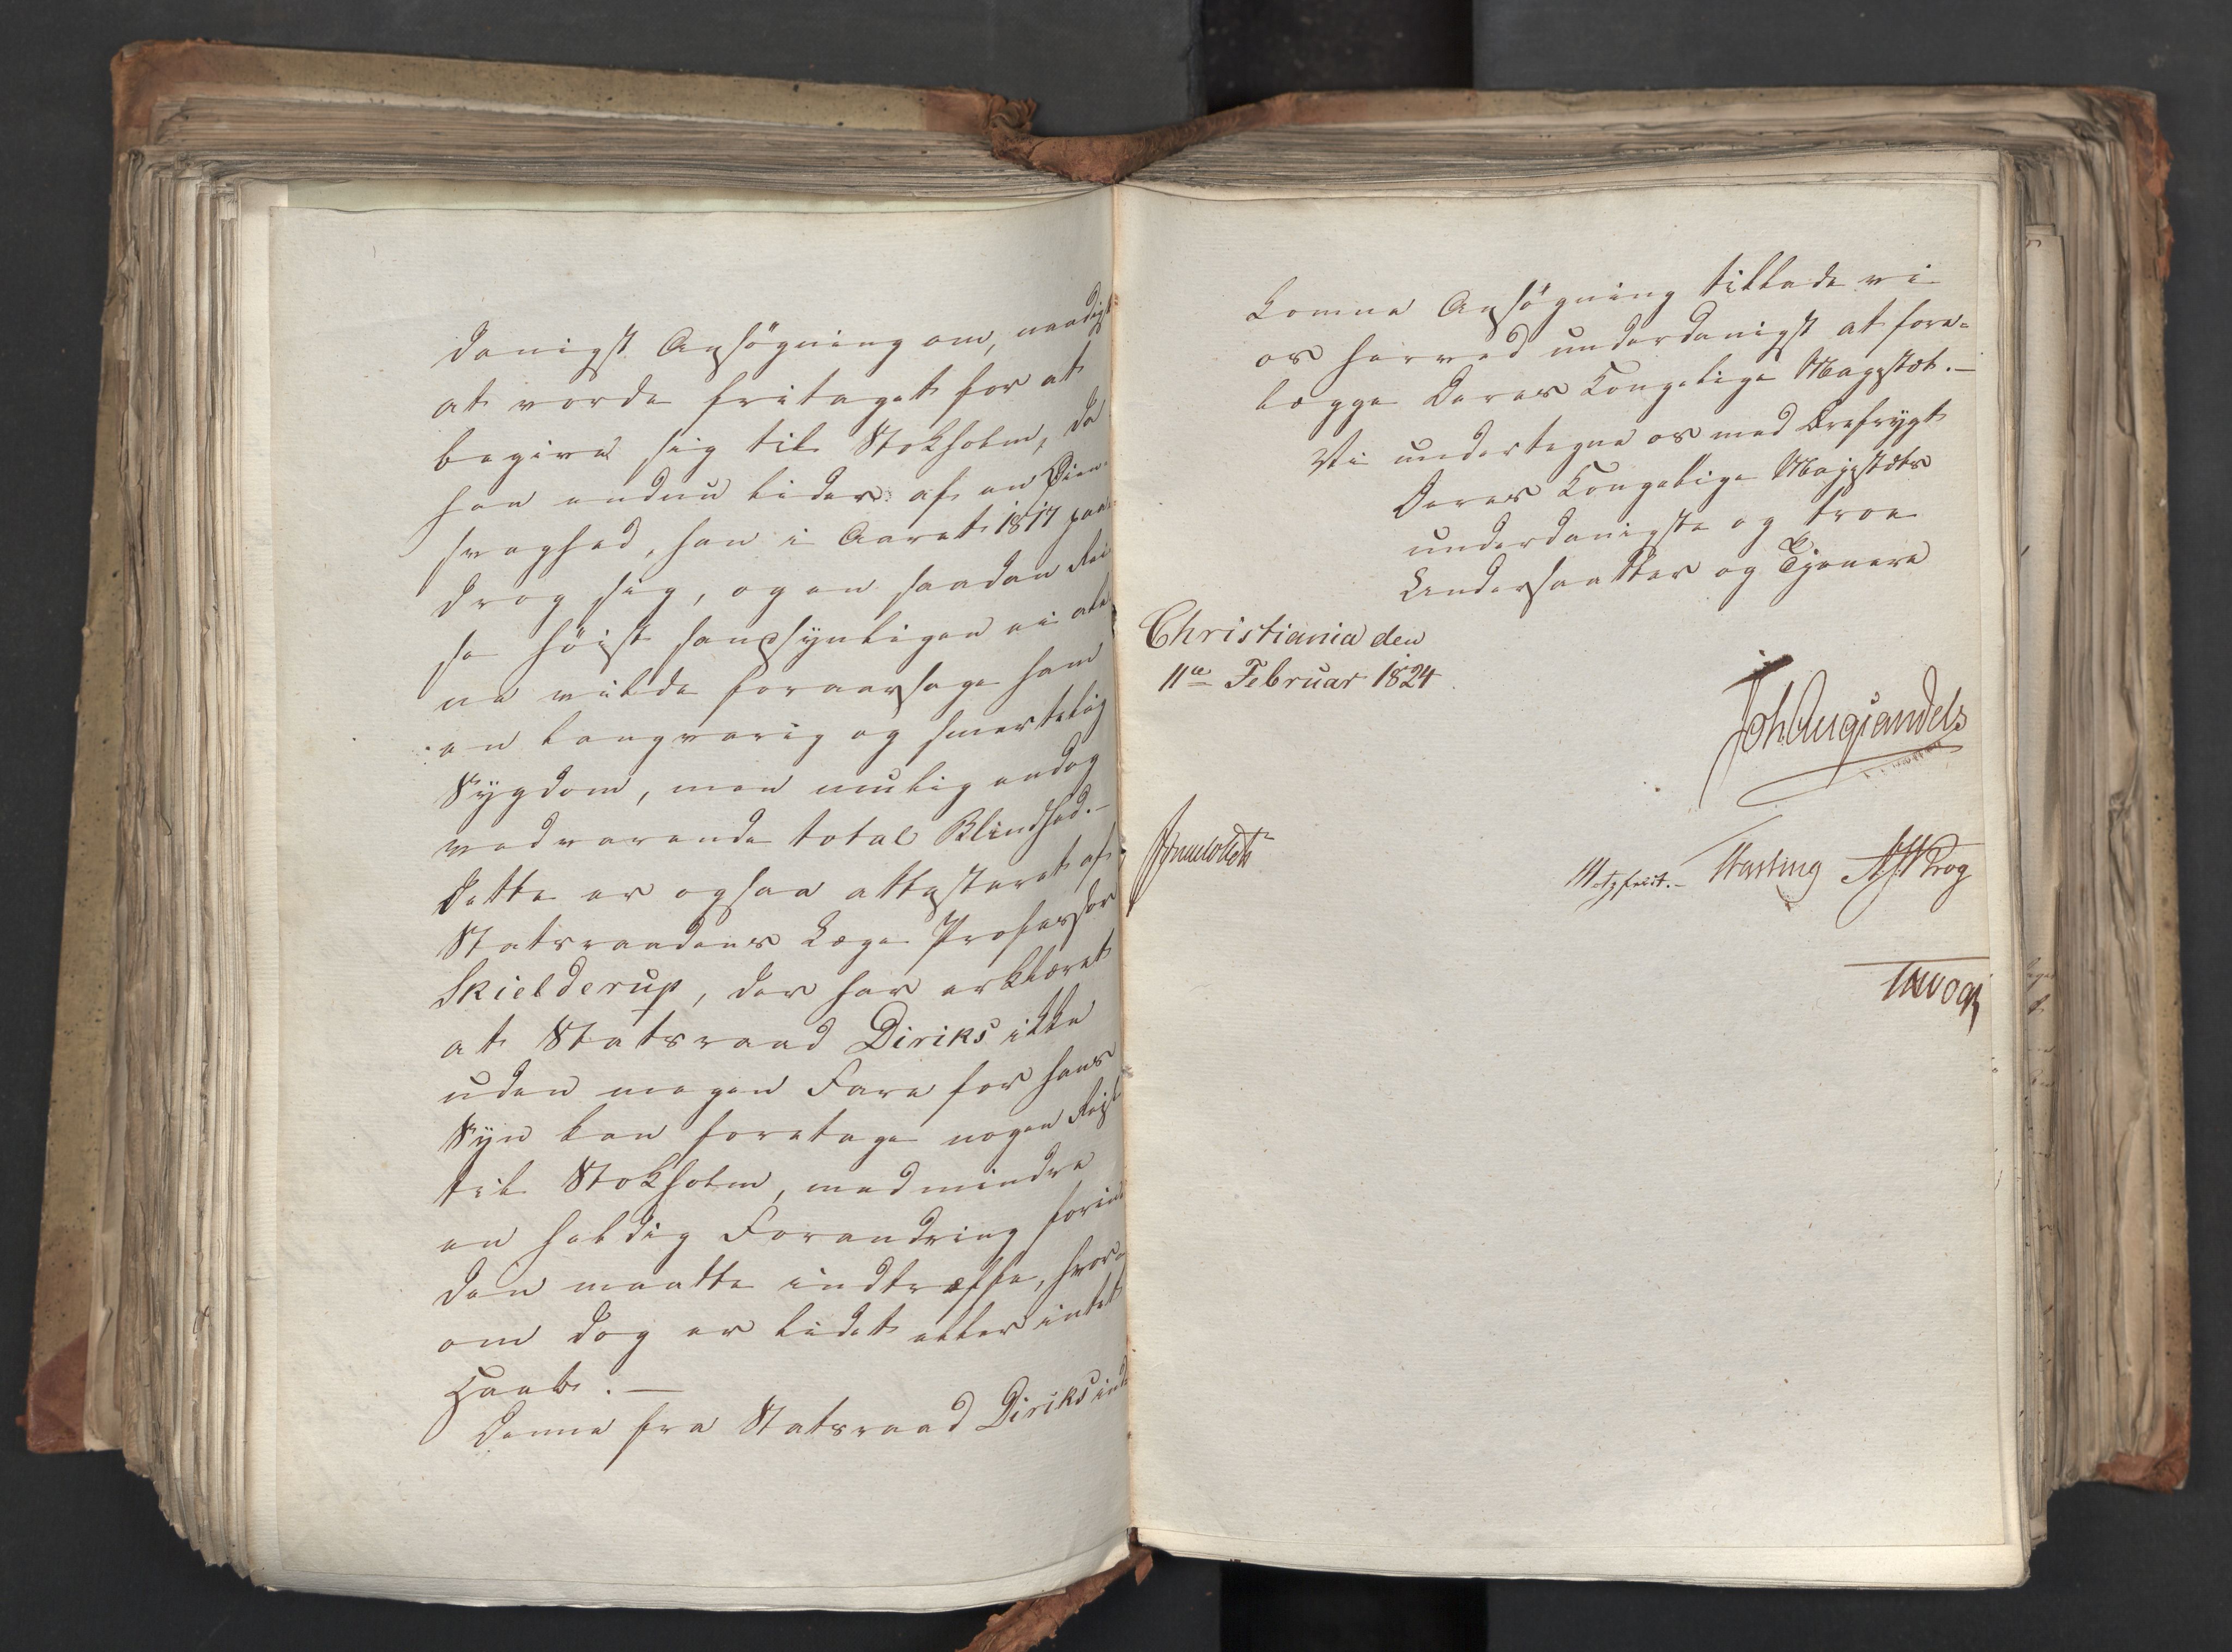 danigst Ansøgning om, naadigst
at vorde fritaget for at
begive sig til Stokholm, da
han endnu lider af en Øien-
svaghed, han i Aaret 1817 paa-
drog sig, og en saadan Rei-
se høist sandsynligen ei ale-
ne vilde foraarsage ham
en langvarig og smertelig
Sygdom, men mulig endog
vedvarende total Blindhed.-
Dette er ogsaa attesteret af
Statsraadens Læge Professor
Skielderup, der har erklæret
at Statsraad Diriks ikke
uden megen Fare for hans
Syn kan foretage nogen Reise
til Stokholm, medmindre
en heldig Forandring forin-
den maatte indtræffe, hvor-
om dog er lidet eller intet
Haab.-
Denne fra Statsraad Diriks ind-
komne Ansøgning tillade vi
os herved underdanigst at fore-
lægge Deres Kongelige Majestæt.-
Vi undertegne os med Ærefrygt
Deres Kongelige Majestæts
underdanigste og troe
Undersaatter og Tjenere
Christiania den
11te Februar 1824
Joh. Aug. Sandels
Motzfeldt.- Hasting Krog